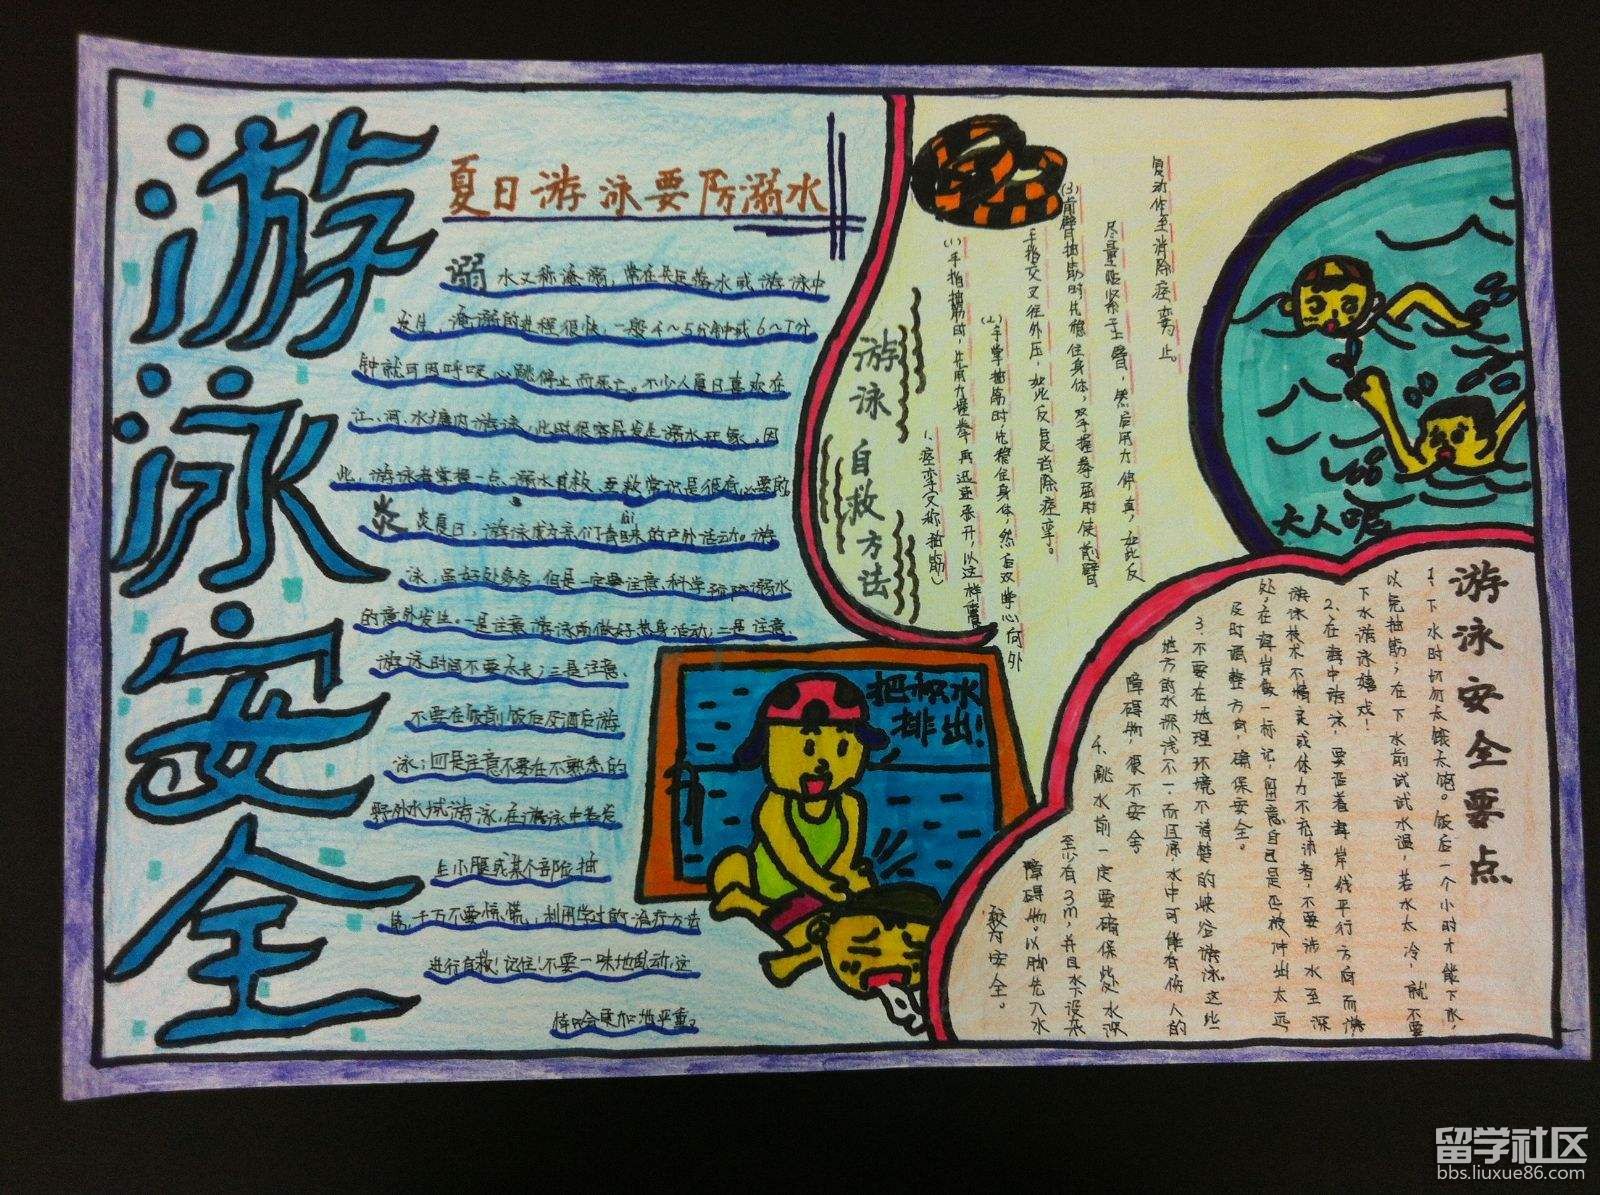 游泳安全
夏日游泳要防溺水
溺水又称淹溺,常在失足落水或游泳中
发生,淹溺的进程很快,一般4~5分钟或6~7分
钟就可因呼吸心跳停止而死亡。不少人夏日喜欢在
江、河、水塘内游泳,此时很容易发生溺水现象,因
此,游泳者掌握一点、溺水自救、互救常识是很有必要的。
炎炎夏日,游泳成为亲们青睐的户外活动。游
泳,虽好处多多,但是一定要注意科学预防溺水
的意外发生。一是注意游泳前做好热身活动;二是注意
游泳时间不要太长;三是注意、
不要在饭前饭后及酒后游
泳;四是注意不要在不熟悉的
野外水域游泳,在游泳中若发
生小腿或某个部位抽
筋,千万不要惊慌,利用学过的治疗方法
进行自救!记住!不要一味地乱动,这
样只会更加地严重。
游泳自救方法
1、痉挛(又称抽筋)
(1)手指抽筋时,先用力握拳,再迅速张开,以这样重
复动作至消除痉挛为止。
(2)手掌抽筋时,先稳住身体,然后双掌心向外
手指交叉往外压,如此反复消除痉挛。
(3)前臂抽筋时先稳住身体,双手握拳屈肘使前臂
尽量贴紧于上臂,然后用力伸直,如此反
大人呢
把积水
排出!
游泳安全要点
1.下水时切勿太饿太饱。饭后一个小时才能下水,
以免抽筋;在下水前试试水温,若水太冷,就不要
下水游泳嬉戏!
2.在海中游泳,要沿着海岸线平行方向而游
游泳技术不精良或体力不充沛者,不要涉水至深
处,在海岸做一标记,留意自己是否被冲出太远
及时调整方向,确保安全。
3.不要在地理环境不清楚的峡谷游泳。这些
地方的水深浅不一,而且凉,水中可能有伤人的
障碍物,很不安全
4.跳水前一定要确保此处水深
至少有3m,并且水下没杂
障碍物。以脚先入水
较为安全。
留学社区
bbs.liuxue86.com